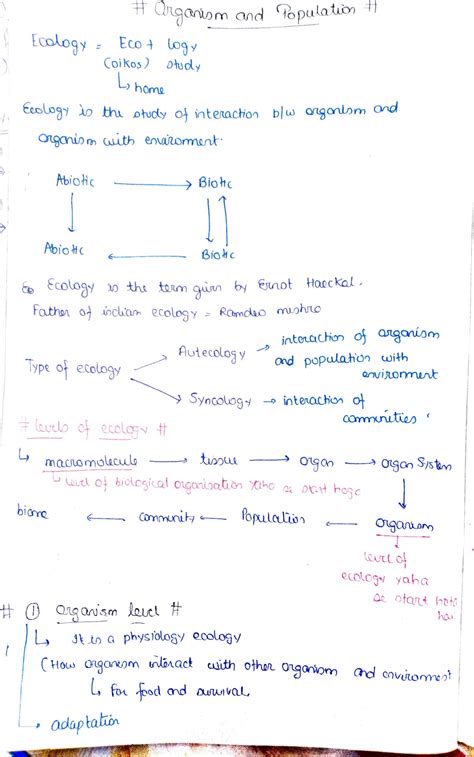 # Organism and Population #
Ecology = Eco + logy
(oikos) study
↳ home
Ecology is the study of interaction b/w organism and
organism with environment.
Abiotic → Biotic
Abiotic ← Biotic
Ecology is the term givin by Ernot Haeckal.
Father of indian ecology = Ramdeo meshro
Type of ecology
→ Autecology → interaction of organism
and population with
environment
→ Syncology → interaction of
communities
# levels of ecology #
↳ macromolecule → tissue → organ → organ System
↳ level of biological organisation yaha se start hoge
biome ← community ← Population ← organism
↓ level of
ecology yaha
se start hota
hai
# ① organism level #
↳ It is a physiology ecology
(How organism interact with other organism and environment
↳ for food and survival
↳ adaptation